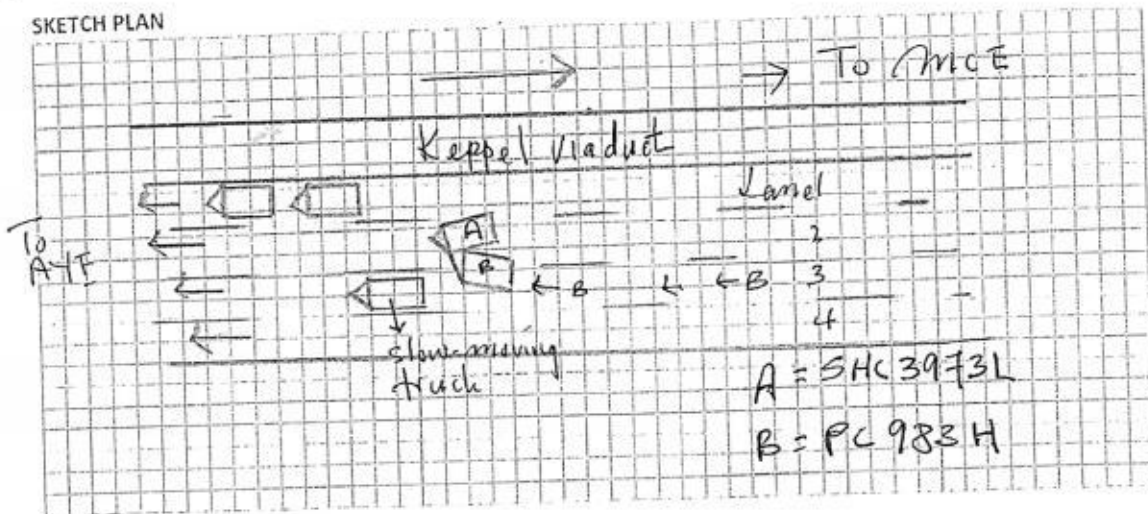 SKETCH PLAN
To MCE
Keppel Viaduct
Lane 1
To
AYE
A
2
B
← B ← ← B 3
4
slow-moving
truck
A = SHC3973L
B = PC983H